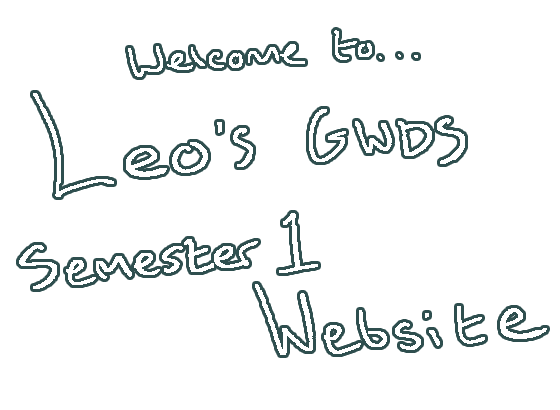 Welcome to...
Leo's GWDS
Semester 1
Website